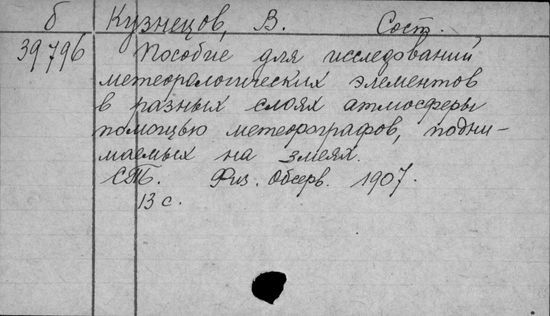 б Кузнецов, В. Сост.
39796 Пособие для исследований
метеорологических элементов
в разных слоях атмосферы
помощью метеорографов, подни-
маемых на змеях.
СПб. Физ. Обсерв. 1907.
13 с.